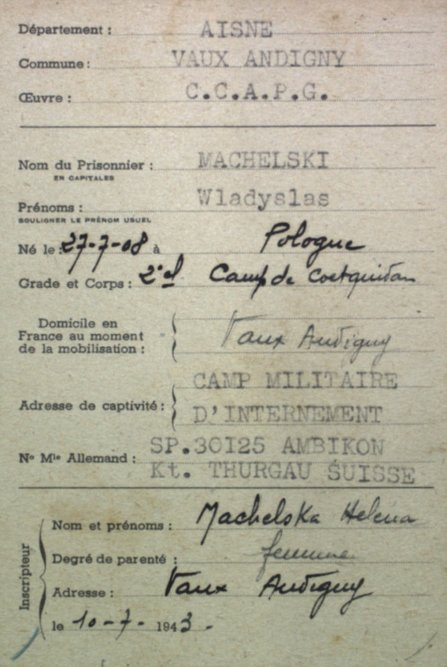 Département : AISNE
Commune : VAUX ANDIGNY
Œuvre : C.C.A.P.G.
Nom du Prisonnier : MACHELSKI
EN CAPITALES
Prénoms : Wladyslas
SOULIGNER LE PRÉNOM USUEL
Né le : 27-7-08 à Pologne
Grade et Corps : 2e cl Camp de Coetquidan
Domicile en
France au moment
de la mobilisation : Vaux Andigny
Adresse de captivité : CAMP MILITAIRE
D'INTERNEMENT
No Mle Allemand : SP.30125 AMBIKON
Kt. THURGAU SUISSE
Inscripteur
Nom et prénoms : Machelska Helena
Degré de parenté : femme
Adresse : Vaux Andigny
le 10-7-1943.